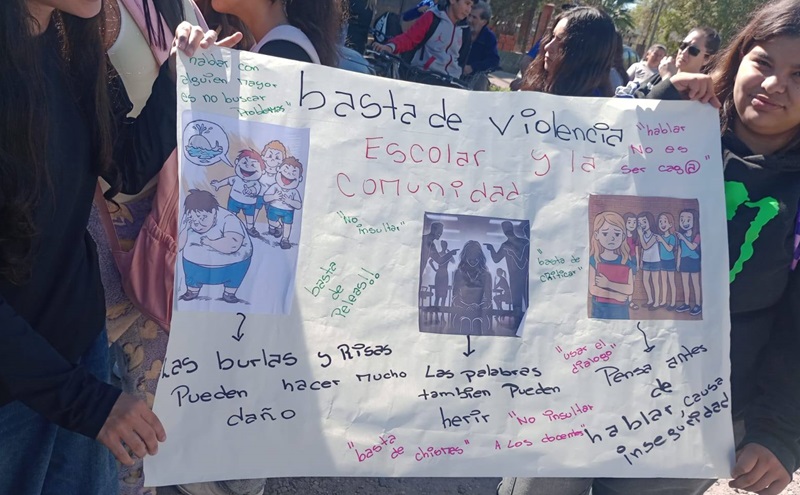 hablar con
alguien mayor
es no buscar
Problemas"
basta de violencia
Escolar y la
comunidad
"hablar
No es
ser cag@"
"No
insultar"
basta
de
Peleas!!
"basta de
criticar"
Las burlas y Risas
Pueden hacer mucho
daño
Las palabras
tambien Pueden
herir
"usar el
dialogo"
Pensa antes
de
hablar, causa
inseguridad
"basta
de chismes"
"No insultar
A Los docentes"